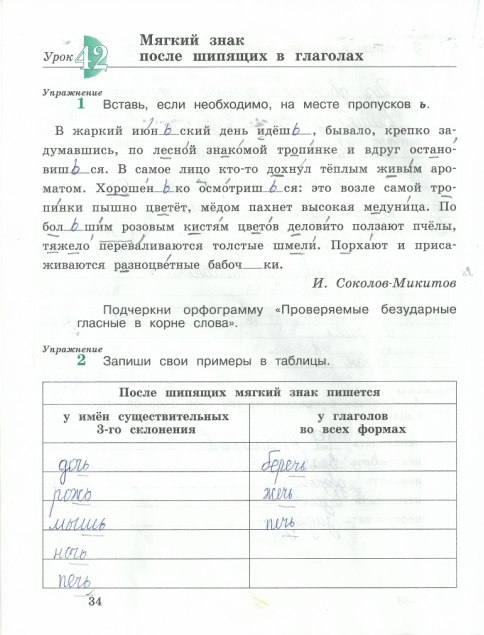 Урок 42
Мягкий знак
после шипящих в глаголах
Упражнение
1 Вставь, если необходимо, на месте пропусков ь.
В жаркий июньский день идёшь, бывало, крепко за-
думавшись, по лесной знакомой тропинке и вдруг остано-
вишься. В самое лицо кто-то дохнул тёплым живым аро-
матом. Хорошенько осмотришься: это возле самой тро-
пинки пышно цветёт, мёдом пахнет высокая медуница. По
большим розовым кистям цветов деловито ползают пчёлы,
тяжело переваливаются толстые шмели. Порхают и приса-
живаются разноцветные бабоч__ки.
И. Соколов-Микитов
Подчеркни орфограмму «Проверяемые безударные
гласные в корне слова».
Упражнение
2 Запиши свои примеры в таблицы.
После шипящих мягкий знак пишется
у имён существительных
3-го склонения
у глаголов
во всех формах
дочь беречь
рожь жечь
мышь печь
ночь
печь
34